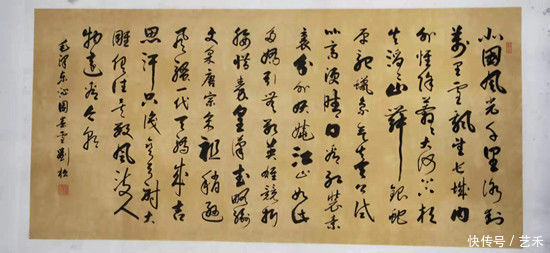 北国风光千里冰封
萬里雪飘望长城内
外惟余莽莽大河上下顿
失滔滔山舞银蛇
原驰蜡象欲与天公试
比高须晴日看红装素
裹分外妖娆江山如此
多娇引无数英雄竞折
腰惜秦皇汉武略输
文采唐宗宋祖稍逊
风骚一代天骄成吉
思汗只识弯弓射大
雕俱往矣数风流人
物还看今朝
毛泽东沁园春雪
快传号 / 艺禾